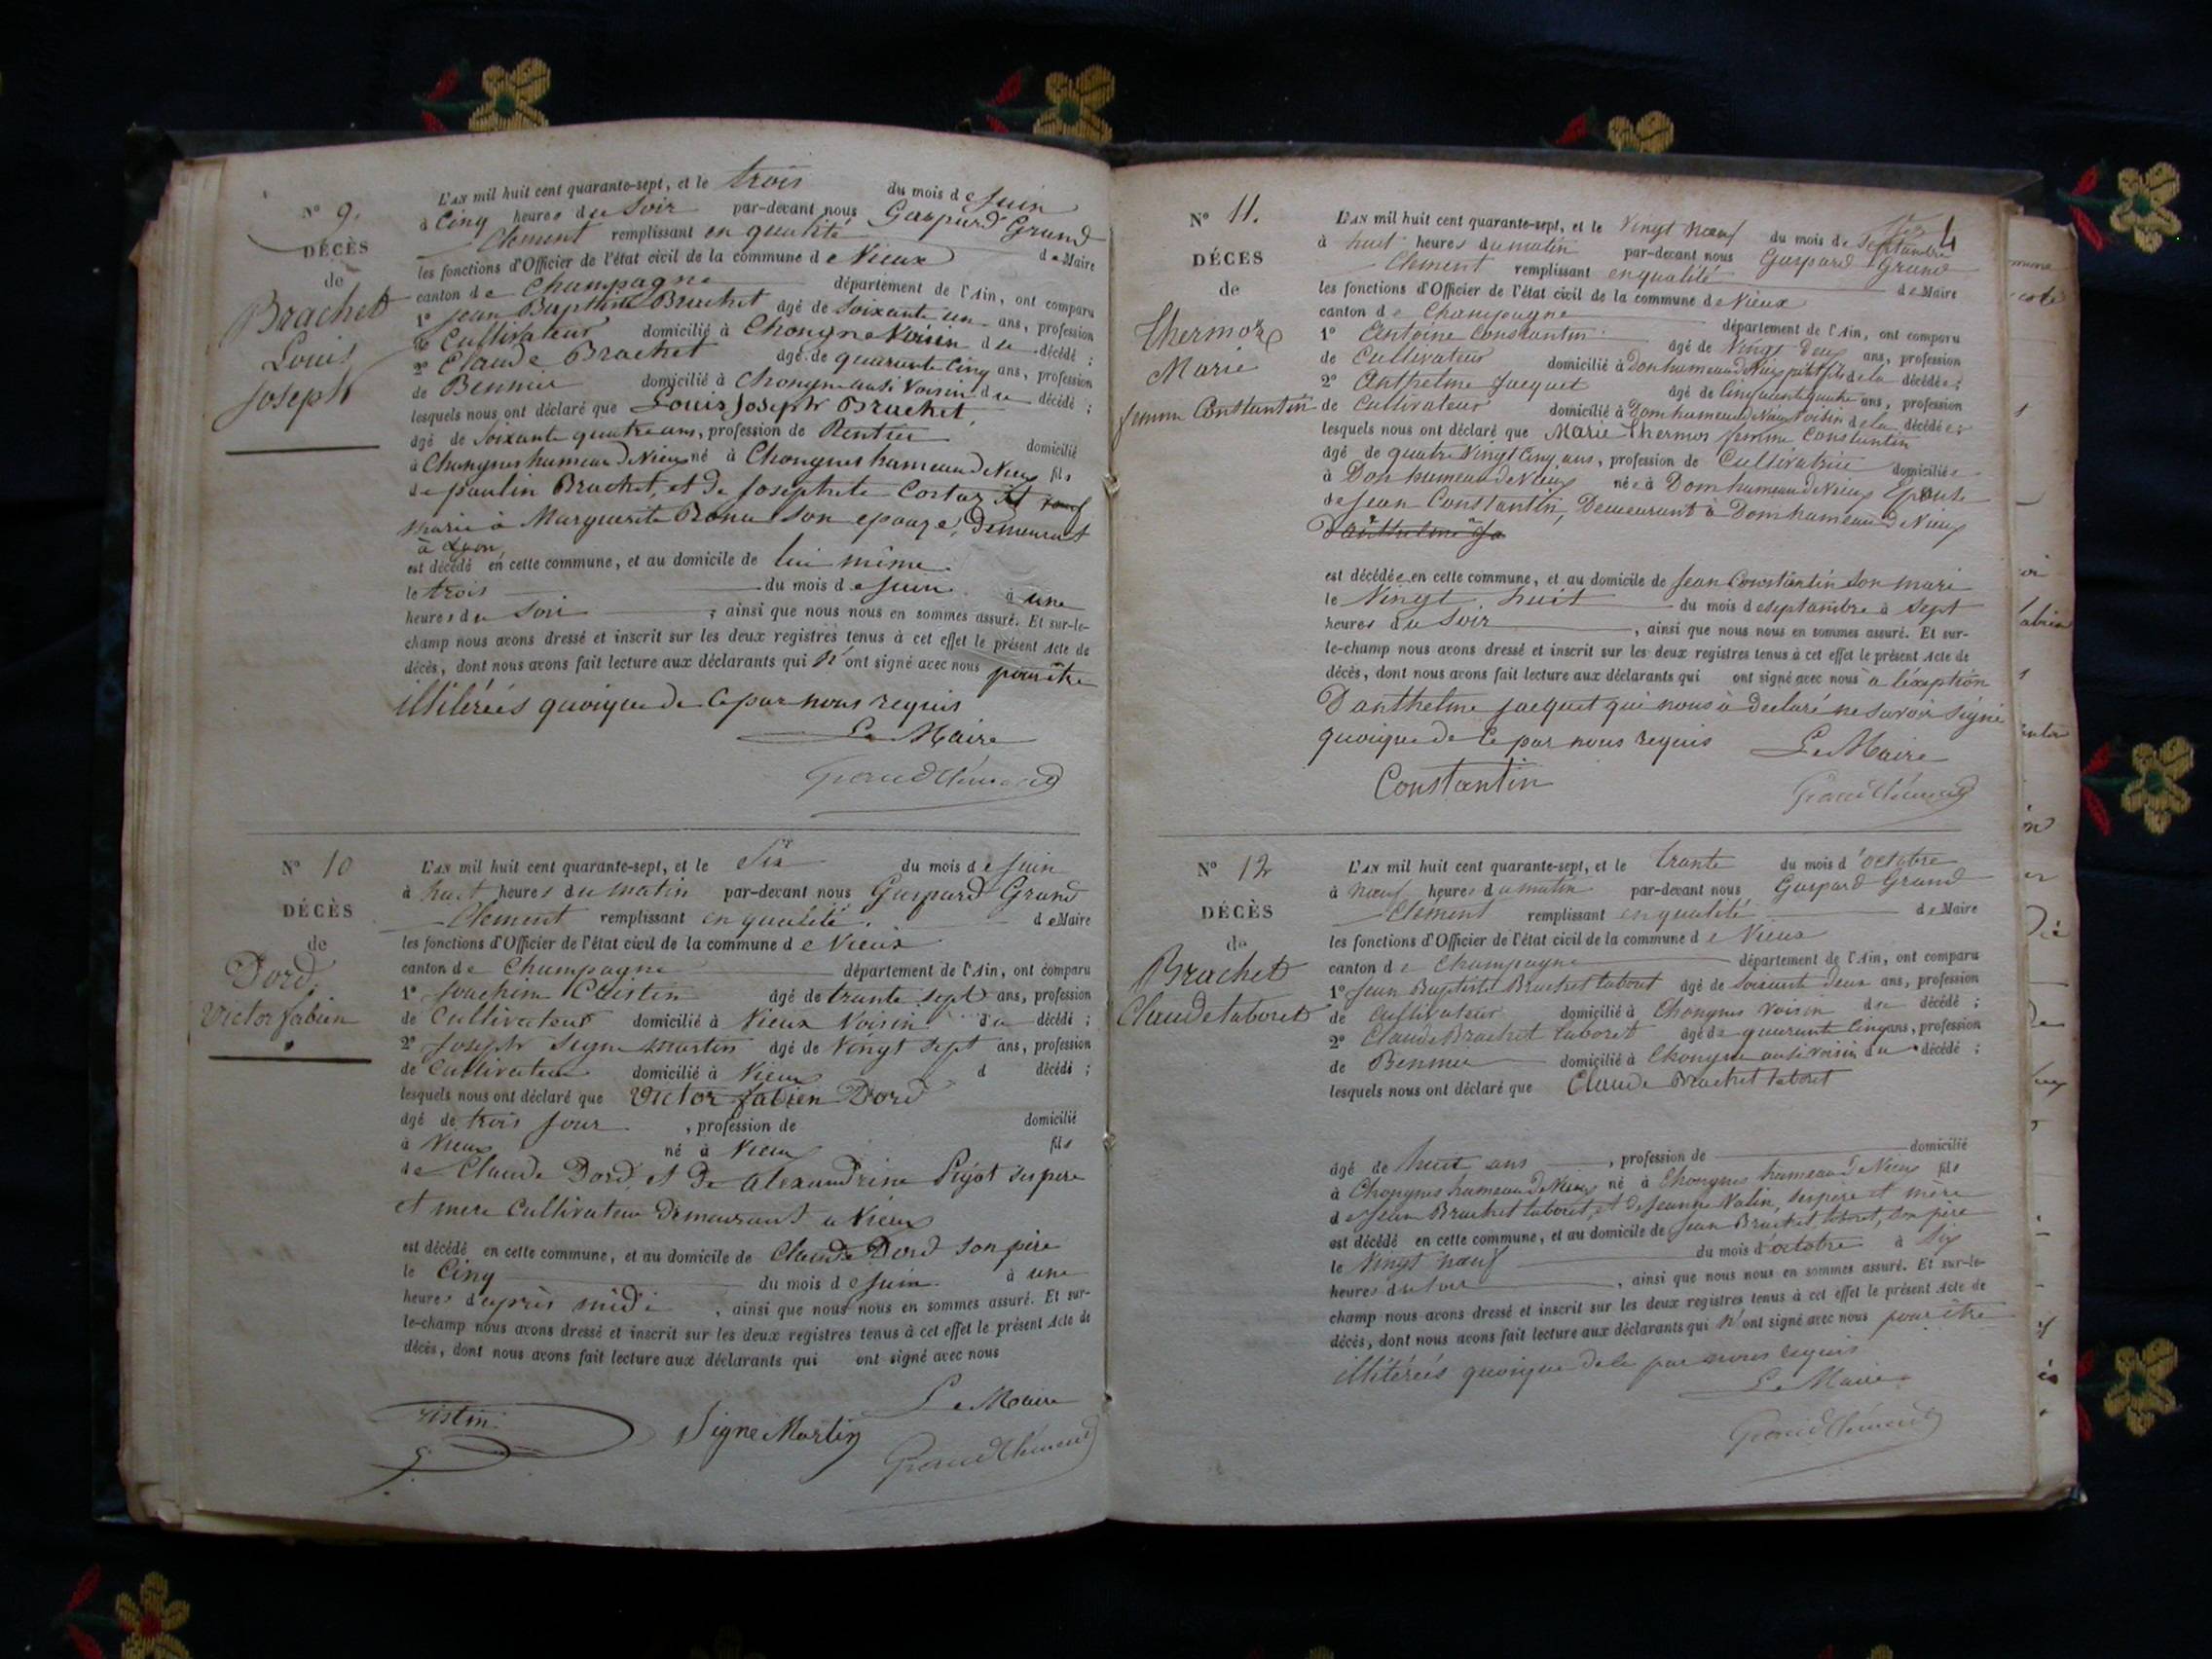 N° 9.
DÉCÈS
de
Brachet
Louis
Joseph
L'AN mil huit cent quarante-sept, et le trois du mois de Juin
à Cinq heures du Soir par-devant nous Gaspard Grand
Clement remplissant en qualité de Maire
les fonctions d'Officier de l'état civil de la commune de Vieux
canton de Champagne département de l'Ain, ont comparu
1° Jean Baptiste Brachet âgé de Soixante un ans, profession
de Cultivateur domicilié à Chongne Voisin du décédé ;
2° Claude Brachet âgé de quarante Cinq ans, profession
de domicilié à Chongne ausi Voisin du décédé ;
lesquels nous ont déclaré que Louis Joseph Brachet,
âgé de Soixante quatre ans, profession de Rentier domicilié
à Chongnes hameau de Vieux né à Chongnes hameau de Vieux fils
de paulin Brachet, et de Josephete
marié à Marguerite son epouze, Demeurant
à Lyon,
est décédé en cette commune, et au domicile de lui même
le trois du mois de Juin à une
heures du Soir ; ainsi que nous nous en sommes assuré. Et sur-le-
champ nous avons dressé et inscrit sur les deux registres tenus à cet effet le présent Acte de
décès, dont nous avons fait lecture aux déclarants qui n'ont signé avec nous pour être
illitérés quoique de ce par nous requis
Le Maire
Grand Clément
N° 10
DÉCÈS
de
Dord
Victor fabien
L'AN mil huit cent quarante-sept, et le Six du mois de Juin
à huit heures du matin par-devant nous Gaspard Grand
Clement remplissant en qualité de Maire
les fonctions d'Officier de l'état civil de la commune de Vieux
canton de Champagne département de l'Ain, ont comparu
1° Joachim âgé de trante sept ans, profession
de Cultivateur domicilié à Vieux Voisin du décédé ;
2° Joseph Signe martin âgé de Vingt sept ans, profession
de Cultivateur domicilié à Vieux d décédé ;
lesquels nous ont déclaré que Victor fabien Dord
âgé de trois jour, profession de domicilié
à Vieux né à Vieux fils
de Claude Dord et de alexandrine Pigot ses pere
et mere Cultivateur Demeurant a Vieux
est décédé en cette commune, et au domicile de Claude Dord son père
le Cinq du mois de Juin à une
heures d'après midi, ainsi que nous nous en sommes assuré. Et sur-
le-champ nous avons dressé et inscrit sur les deux registres tenus à cet effet le présent Acte de
décès, dont nous avons fait lecture aux déclarants qui ont signé avec nous
Le Maire
Signe Martin
Grand Clément
N° 11.
DÉCÈS
de
Thermoz
Marie
femme Constantin
4
L'AN mil huit cent quarante-sept, et le Vingt nœuf du mois de Septambre
à huit heures du matin par-devant nous Gaspard Grand
Clement remplissant en qualité de Maire
les fonctions d'Officier de l'état civil de la commune de Vieux
canton de Champagne département de l'Ain, ont comparu
1° Antoine Constantin âgé de Vingt Deux ans, profession
de Cultivateur domicilié à Don hameau de Vieux petit fils de la décédée ;
2° Anthelme Jacquet âgé de Cinquante quatre ans, profession
de Cultivateur domicilié à Dom hameau de Vieux Voisin de la décédée ;
lesquels nous ont déclaré que Marie Thermos femme Constantin
âgé de quatre Vingt Cinq ans, profession de Cultivatrice domiciliée
à Don hameau de Vieux née à Dom hameau de Vieux Epouse
de Jean Constantin, Demeurant à Dom hameau de Vieux
est décédée en cette commune, et au domicile de Jean Constantin Son mari
le Vingt huit du mois de septambre à Sept
heures du Soir, ainsi que nous nous en sommes assuré. Et sur-
le-champ nous avons dressé et inscrit sur les deux registres tenus à cet effet le présent Acte de
décès, dont nous avons fait lecture aux déclarants qui ont signé avec nous a l'éxeption
D'anthelme jacquet qui nous à declaré ne savoir signé
quoique de Ce par nous requis Le Maire
Constantin
Grand Clément
N° 12
DÉCÈS
de
Brachet
Claude taboret
L'AN mil huit cent quarante-sept, et le trante du mois d'octobre
à nœuf heures du matin par-devant nous Gaspard Grand
Clément remplissant en qualité de Maire
les fonctions d'Officier de l'état civil de la commune de Vieux
canton de Champagne département de l'Ain, ont comparu
1° Jean Baptiste Brachet tabout âgé de soixante Deux ans, profession
de Cultivateur domicilié à Chongnes voisin du décédé ;
2° Claude Brachet taboret âgé de quarante Cinq ans, profession
de domicilié à Chongne ausi voisin du décédé ;
lesquels nous ont déclaré que Claude Brachet taboret
âgé de huit ans, profession de domicilié
à Chongnes hameau de Vieux né à Chongnes hameau de Vieux fils
de Jean Brachet taboret, et de Jeanne Valin, ses père et mère
est décédé en cette commune, et au domicile de Jean Brachet taboret, son père
le Vingt nœuf du mois d'octobre à Six
heures du soir, ainsi que nous nous en sommes assuré. Et sur-le-
champ nous avons dressé et inscrit sur les deux registres tenus à cet effet le présent Acte de
décès, dont nous avons fait lecture aux déclarants qui n'ont signé avec nous pour être
illitérés quoique de ce par nous requis
Le Maire
Grand Clément